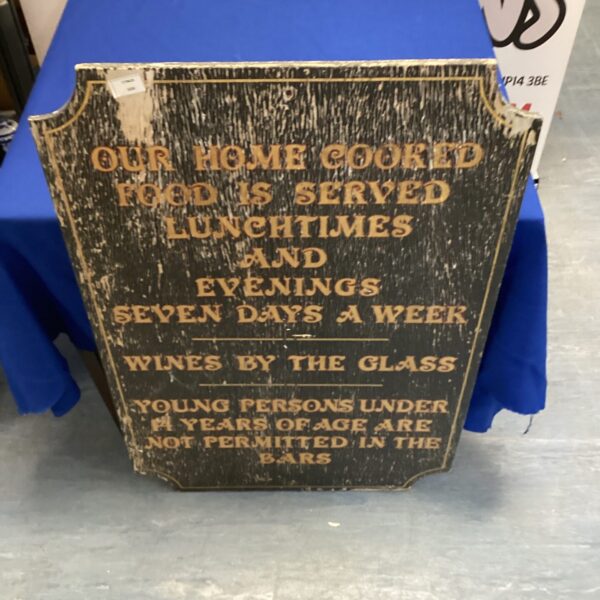 OUR HOME COOKED
FOOD IS SERVED
LUNCHTIMES
AND
EVENINGS
SEVEN DAYS A WEEK
WINES BY THE GLASS
YOUNG PERSONS UNDER
14 YEARS OF AGE ARE
NOT PERMITTED IN THE
BARS
P14 3BE